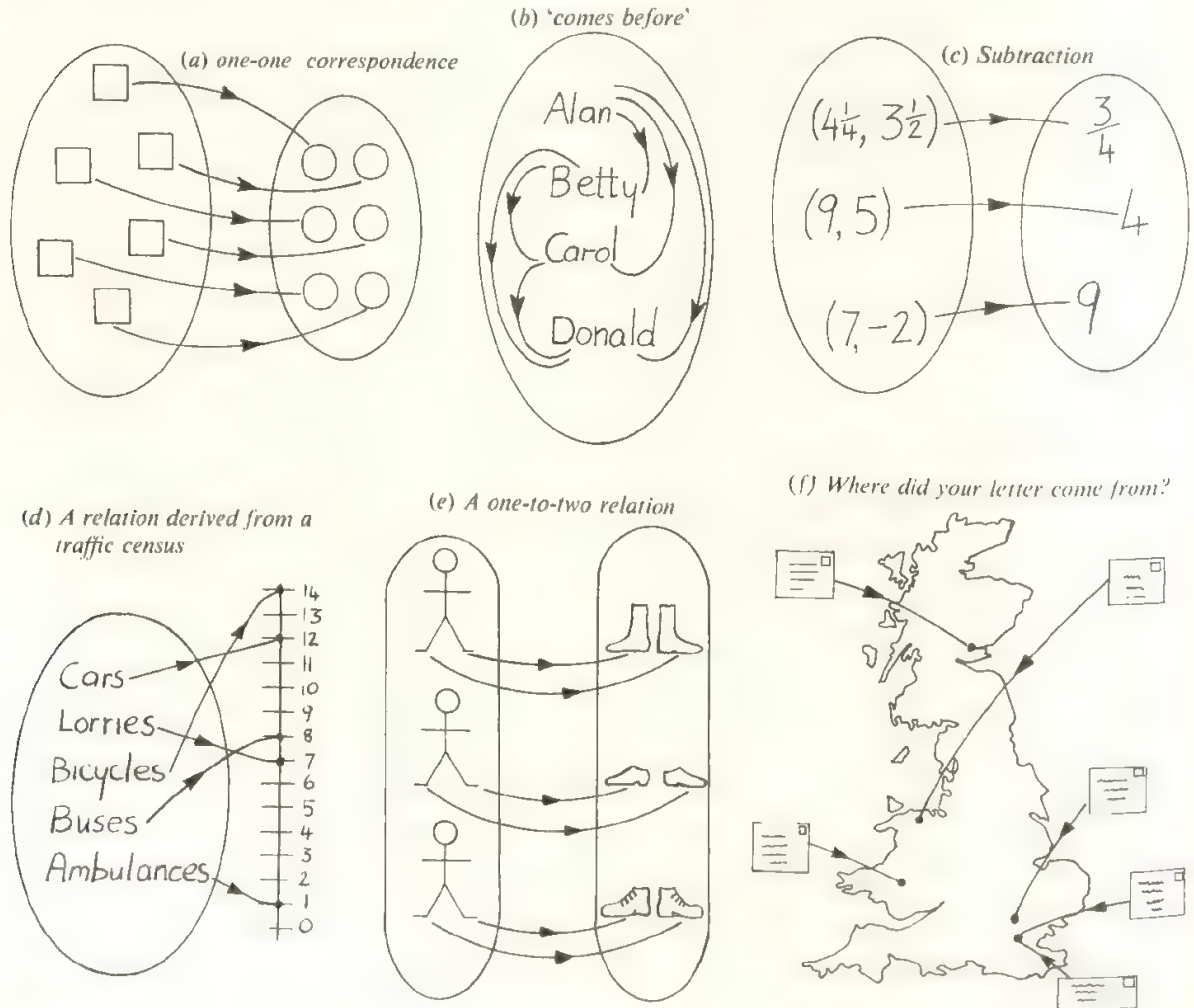 (a) one-one correspondence
(b) 'comes before'
Alan
Betty
Carol
Donald
(c) Subtraction
(4¼, 3½)
3/4
(9, 5)
4
(7, -2)
9
(d) A relation derived from a
traffic census
Cars
Lorries
Bicycles
Buses
Ambulances
14
13
12
11
10
9
8
7
6
5
4
3
2
1
0
(e) A one-to-two relation
(f) Where did your letter come from?